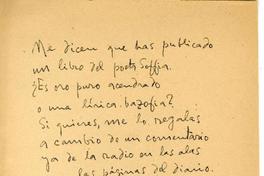 Me dicen que has publicado
un libro del poeta Soffia.
¿Es oro puro acendrado
o una lírica bazofia?
Si quieres, me lo regalas
a cambio de un comentario
ya de la radio en las alas
las páginas del diario.